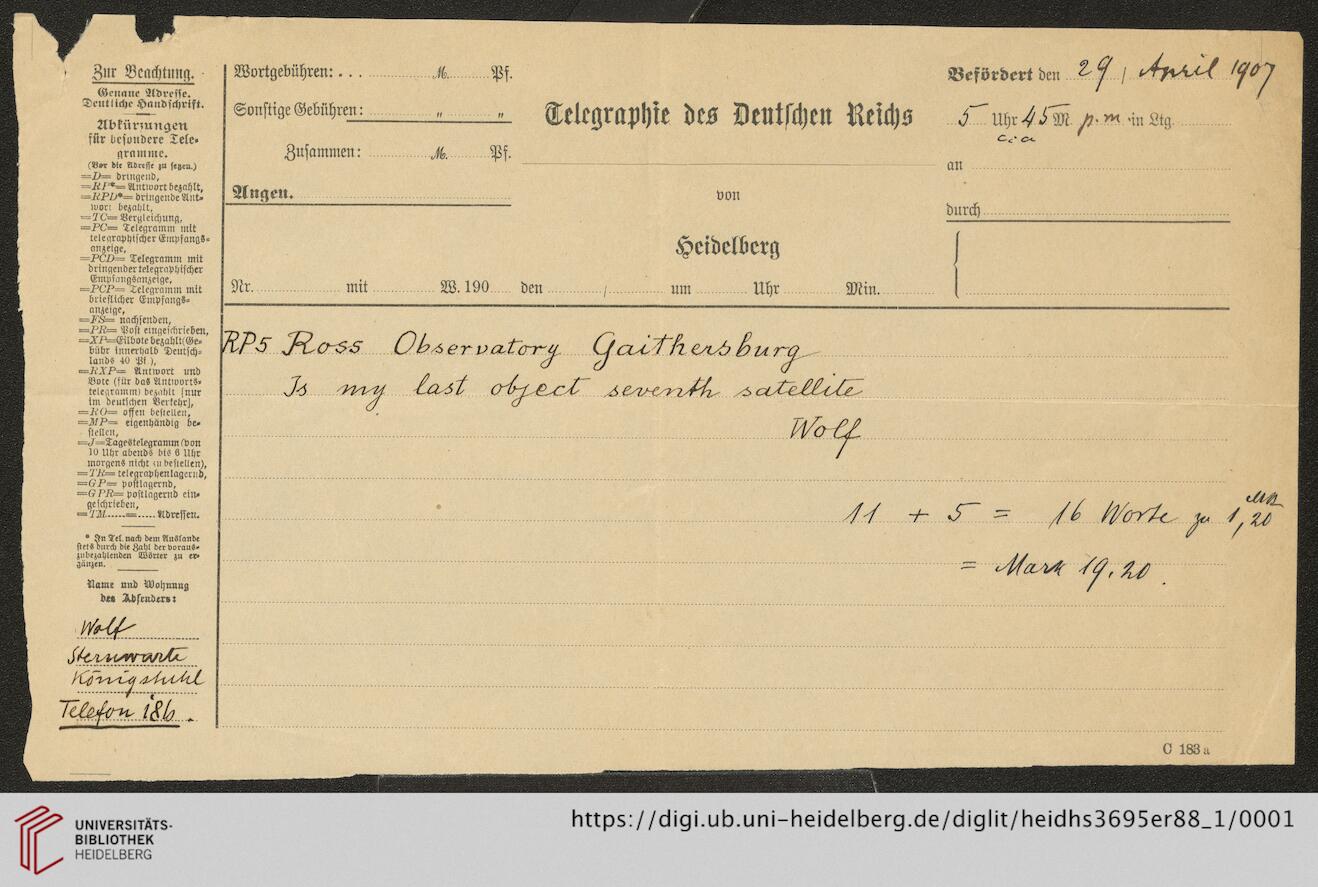 Zur Beachtung.
Genaue Adresse.
Deutliche Handschrift.
Abkürzungen
für besondere Tele-
gramme.
(Vor die Adresse zu setzen.)
=D= dringend,
=RP*= Antwort bezahlt,
=RPD*= dringende Ant-
wort bezahlt,
=TC= Vergleichung,
=PC= Telegramm mit
telegraphischer Empfangs-
anzeige,
=PCD= Telegramm mit
dringender telegraphischer
Empfangsanzeige,
=PCP= Telegramm mit
brieflicher Empfangs-
anzeige,
=FS= nachsenden,
=PR= Post eingeschrieben,
=XP=Eilbote bezahlt (Ge-
bühr innerhalb Deutsch-
lands 40 Pf.),
=RXP= Antwort und
Bote (für das Antworts-
telegramm) bezahlt [nur
im deutschen Verkehr],
=RO= offen bestellen,
=MP= eigenhändig be-
stellen,
=J=Tagestelegramm (von
10 Uhr abends bis 6 Uhr
morgens nicht zu bestellen),
=TR= telegraphenlagernd,
=GP= postlagernd,
=GPR= postlagernd ein-
geschrieben,
=TM......=...... Adressen.
* In Tel. nach dem Auslande
stets durch die Zahl der voraus-
zubezahlenden Wörter zu er-
gänzen.
Name und Wohnung
des Absenders:
Wolf
Sternwarte
Königstuhl
Telefon 186.
Wortgebühren: . . . M. Pf.
Sonstige Gebühren: " "
Zusammen: M. Pf.
Angen.
Telegraphie des Deutschen Reichs
von
Heidelberg
Befördert den 29 / April 1907
5 Uhr 45 M. p.m. in Ltg.
cca
an
durch
Nr. mit W. 190 den / um Uhr Min.
RP5 Ross Observatory Gaithersburg
Is my last object seventh satellite
Wolf
11 + 5 = 16 Worte zu 1,20 Mk
= Mark 19,20.
C 183 a
UNIVERSITÄTS-
BIBLIOTHEK
HEIDELBERG
https://digi.ub.uni-heidelberg.de/diglit/heidhs3695er88_1/0001